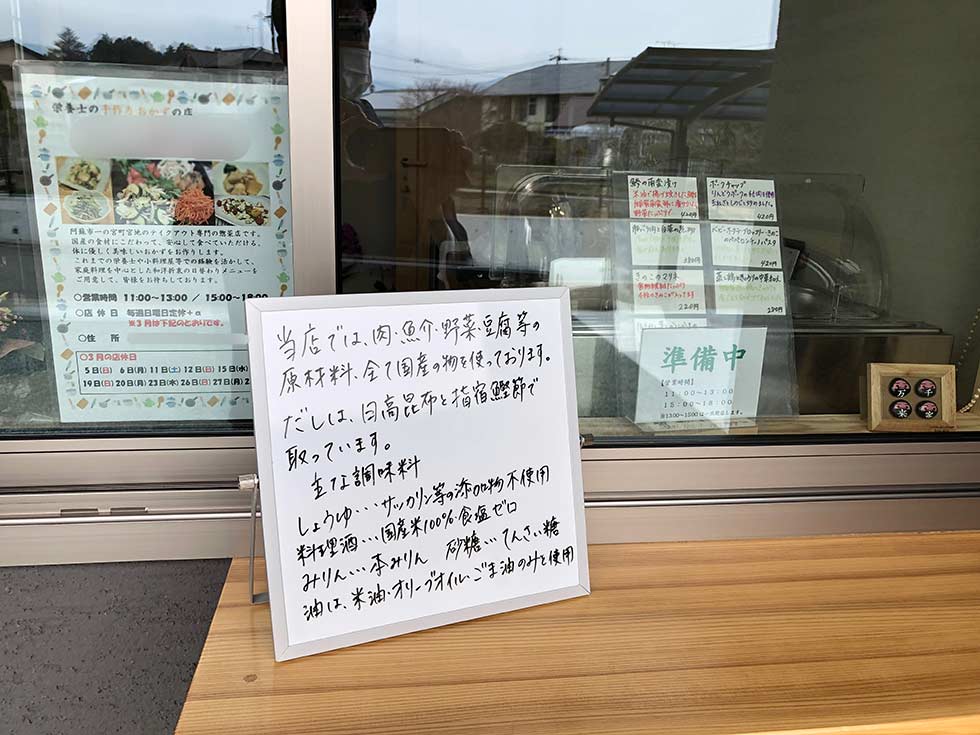 栄養士の手作りおかずの店
阿蘇市一の宮町宮地のテイクアウト専門の惣菜店です。
国産の食材にこだわって、安心して食べていただける、
体に優しく美味しいおかずをお作りします。
これまでの栄養士や小料理屋等での経験を活かして、
家庭料理を中心とした和洋折衷の日替わりメニューを
ご用意して、皆様をお待ちしております。
○営業時間 11:00～13:00 / 15:00～18:00
○店休日 毎週日曜日定休+α
※3月は下記のとおりです。
○住所
○3月の店休日
5日(日) 6日(月) 11日(土) 12日(日) 15日(水)
19日(日) 20日(月) 23日(木) 26日(日) 27日(月)
当店では、肉・魚介・野菜・豆腐等の
原材料、全て国産の物を使っております。
だしは、日高昆布と指宿鰹節で
取っています。
主な調味料
しょうゆ…サッカリン等の添加物不使用
料理酒…国産米100%・食塩ゼロ
みりん…本みりん 砂糖…てんさい糖
油は、米油・オリーブオイル・ごま油のみを使用
鯵の南蛮漬け
420円
ポークチャップ
りんどうポークの
420円
380円
420円
きのこのマリネ
220円
準備中
【営業時間】
11:00～13:00
15:00～18:00
万
千